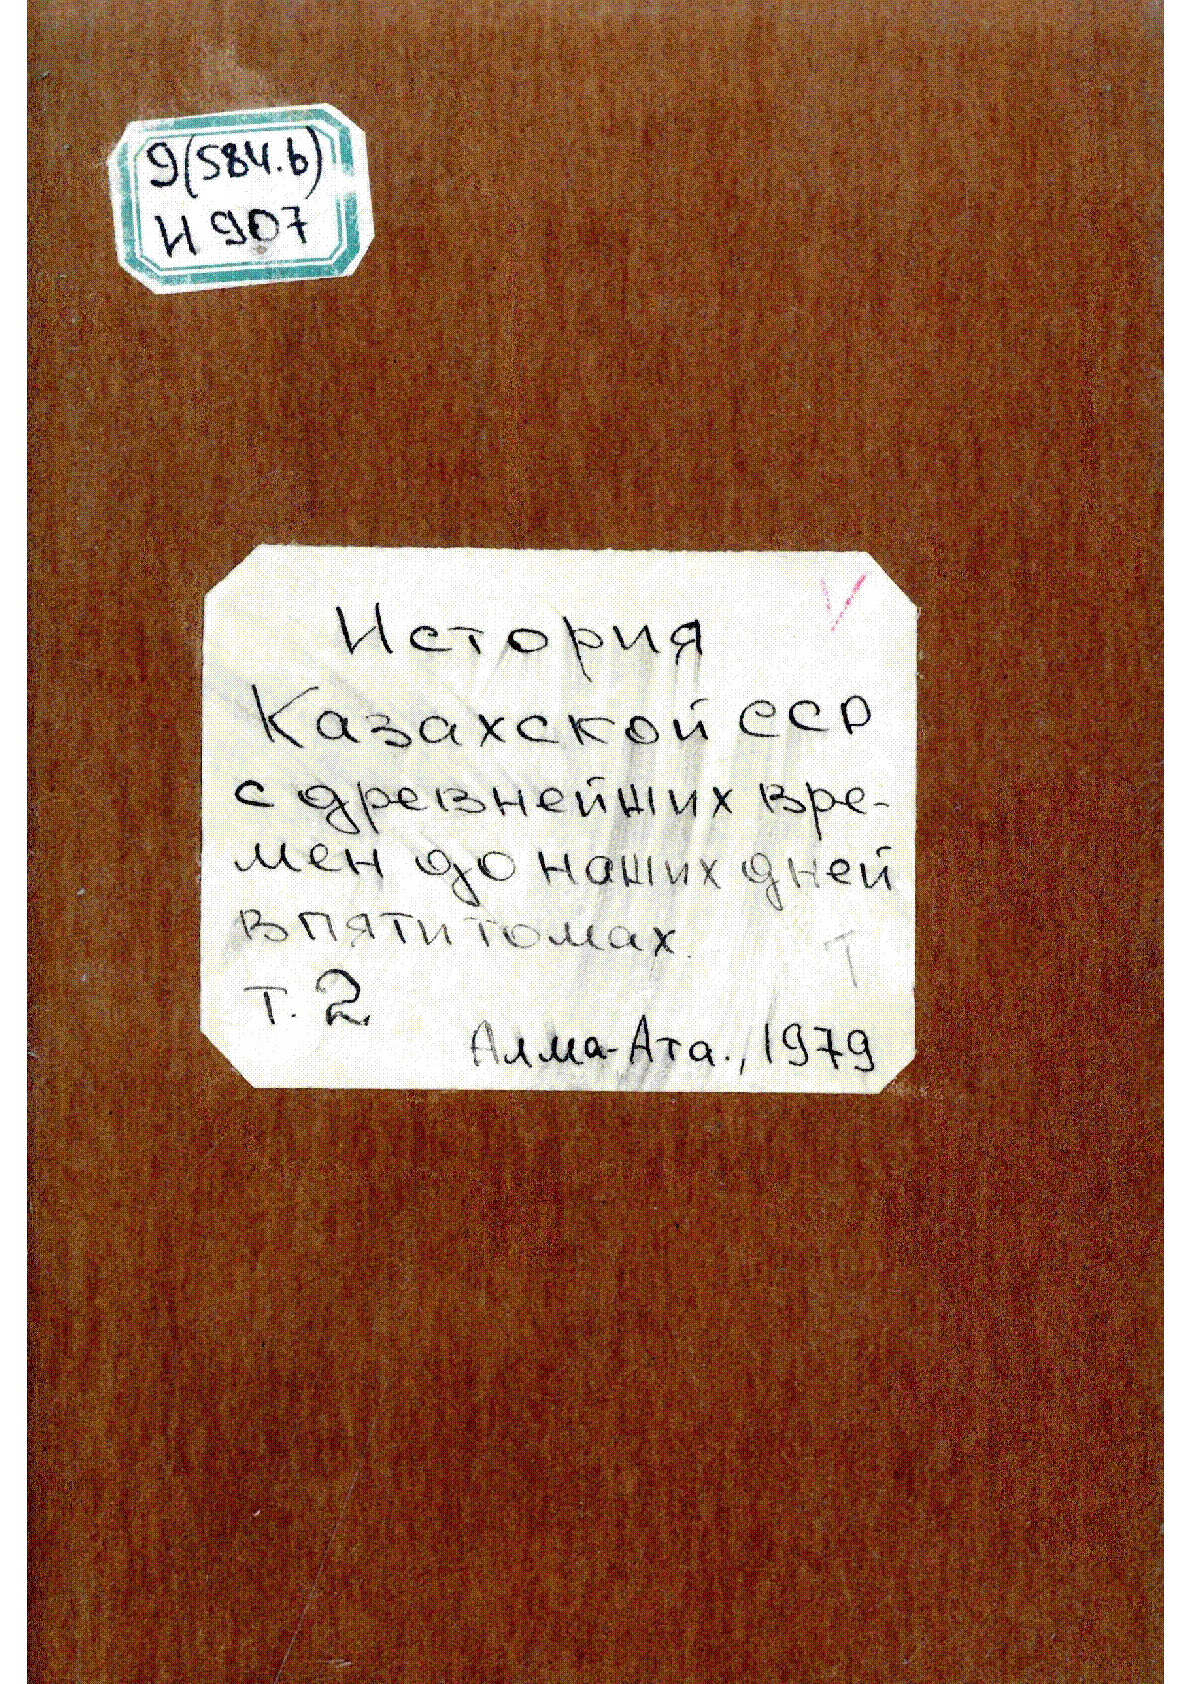 9(584.6)
И 907
V
История
Казахской ССР
с древнейших вре-
мен до наших дней
в пяти томах.
Т
т. 2
Алма-Ата., 1979